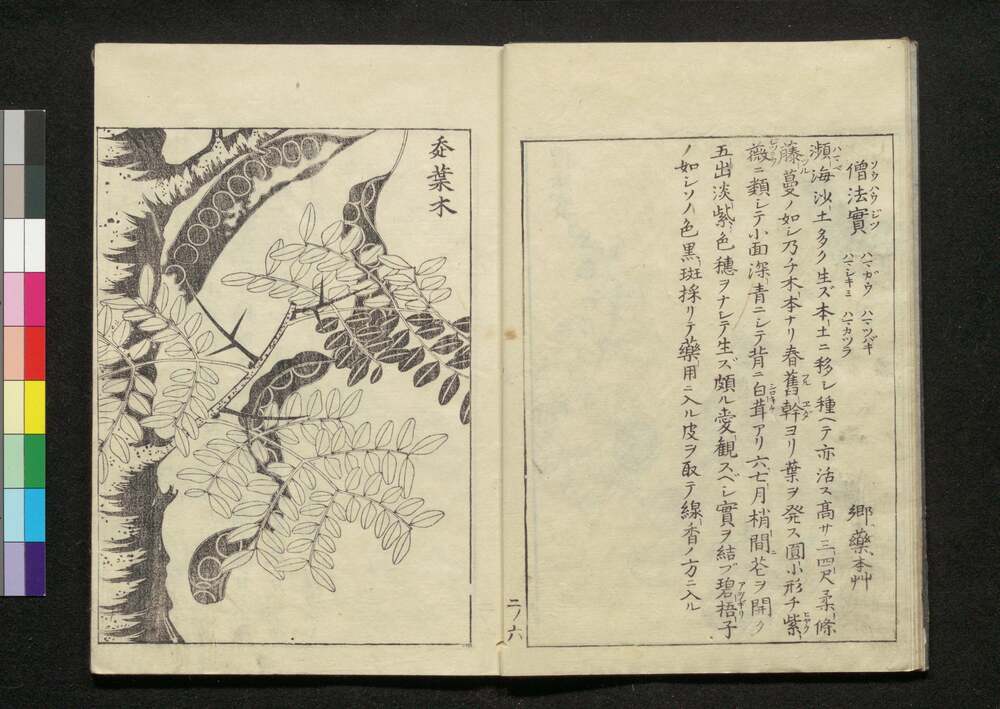 僧法實 ソウハウジツ ハマガウ ハマツバキ ハマシキミ ハマカツラ 郷藥本艸
瀕海沙土多ク生ズ本土ニ移シ種ヘテ亦活ス高サ三四尺柔條
藤蔓ノ如シ乃チ木本ナリ春舊幹ヨリ葉ヲ発ス圓小形チ紫
薇ニ類シテ小面深青ニシテ背ニ白茸アリ六七月梢間花ヲ開ク
五出淡紫色穗ヲナシテ生ズ頗ル愛観スベシ實ヲ結ブ碧梧子
ノ如シソノ色黒斑採リテ藥用ニ入ル皮ヲ取テ線香ノ方ニ入ル
二ノ六
葉木